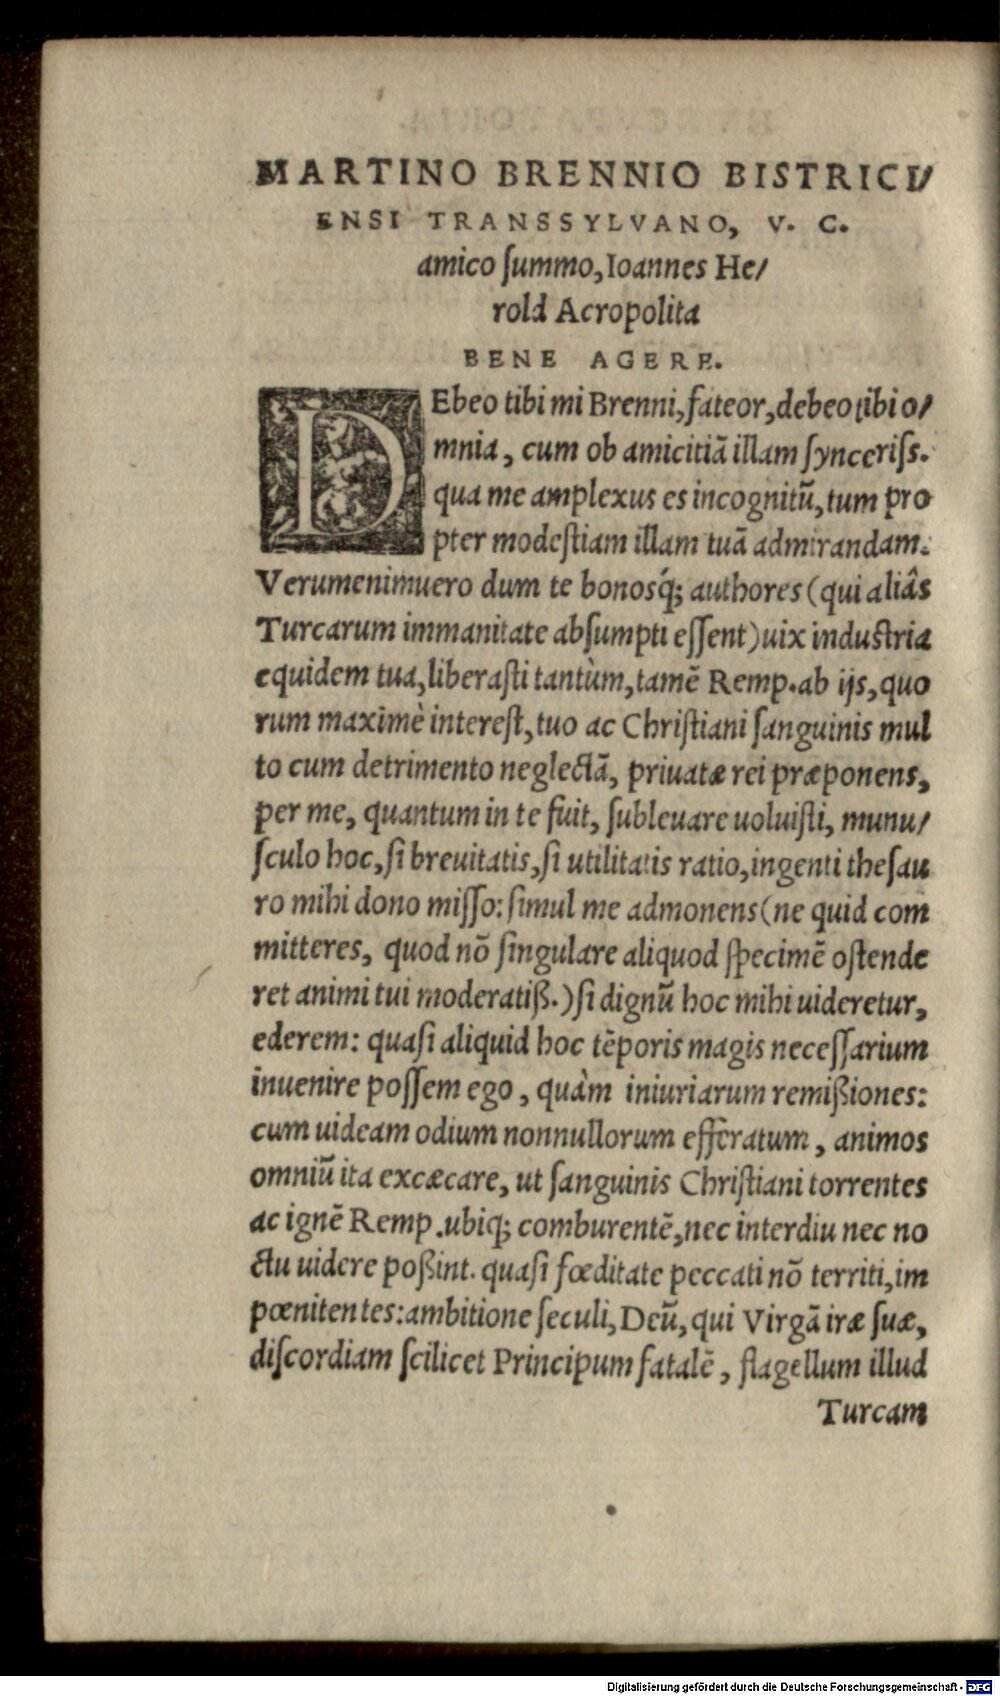 MARTINO BRENNIO BISTRICI/
ENSI TRANSSYLVANO, V. C.
amico ſummo, Ioannes He/
rold Acropolita
BENE AGERE.
DEbeo tibi mi Brenni, fateor, debeo tibi o/
mnia, cum ob amicitiã illam ſynceriſs.
qua me amplexus es incognitũ, tum pro
pter modeſtiam illam tuã admirandam.
Verumenimuero dum te bonosq́; authores (qui aliâs
Turcarum immanitate abſumpti eſſent) uix induſtria
equidem tua, liberaſti tantùm, tamẽ Remp. ab ijs, quo
rum maximè intereſt, tuo ac Chriſtiani ſanguinis mul
to cum detrimento neglectã, priuatæ rei præponens,
per me, quantum in te fuit, ſubleuare uoluiſti, munu/
ſculo hoc, ſi breuitatis, ſi utilitatis ratio, ingenti theſau
ro mihi dono miſſo: ſimul me admonens (ne quid com
mitteres, quod nõ ſingulare aliquod ſpecimẽ oſtende
ret animi tui moderatiß.) ſi dignũ hoc mihi uideretur,
ederem: quaſi aliquid hoc tẽporis magis neceſſarium
inuenire poſſem ego, quàm iniuriarum remißiones:
cum uideam odium nonnullorum efferatum, animos
omniũ ita excæcare, ut ſanguinis Chriſtiani torrentes
ac ignẽ Remp. ubiq; comburentẽ, nec interdiu nec no
ctu uidere poßint. quaſi fœditate peccati nõ territi, im
pœnitentes: ambitione ſeculi, Deũ, qui Virgã iræ ſuæ,
diſcordiam ſcilicet Principum fatalẽ, flagellum illud
Turcam
Digitalisierung gefördert durch die Deutsche Forschungsgemeinschaft - DFG